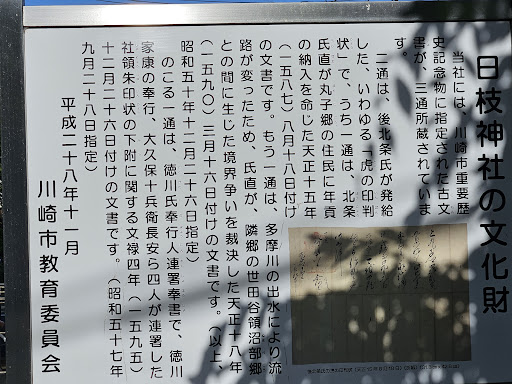 日枝神社の文化財
当社には、川崎市重要歴
史記念物に指定された古文
書が、三通所蔵されていま
す。
二通は、後北条氏が発給
した、いわゆる「虎の印判
状」で、うち一通は、北条
氏直が丸子郷の住民に年貢
の納入を命じた天正十五年
(一五八七)八月十八日付け
の文書です。もう一通は、多摩川の出水により流
路が変ったため、氏直が、隣郷の世田谷領沼部郷
との間に生じた境界争いを裁決した天正十八年
(一五九〇)三月十六日付けの文書です。(以上、
昭和五十年十二月二十六日指定)
のこる一通は、徳川氏奉行人連署奉書で、徳川
家康の奉行、大久保十兵衛長安ら四人が連署した
社領朱印状の下附に関する文禄四年(一五九五)
十二月二十六日付けの文書です。(昭和五十七年
九月二十八日指定)
平成二十八年十一月
川崎市教育委員会